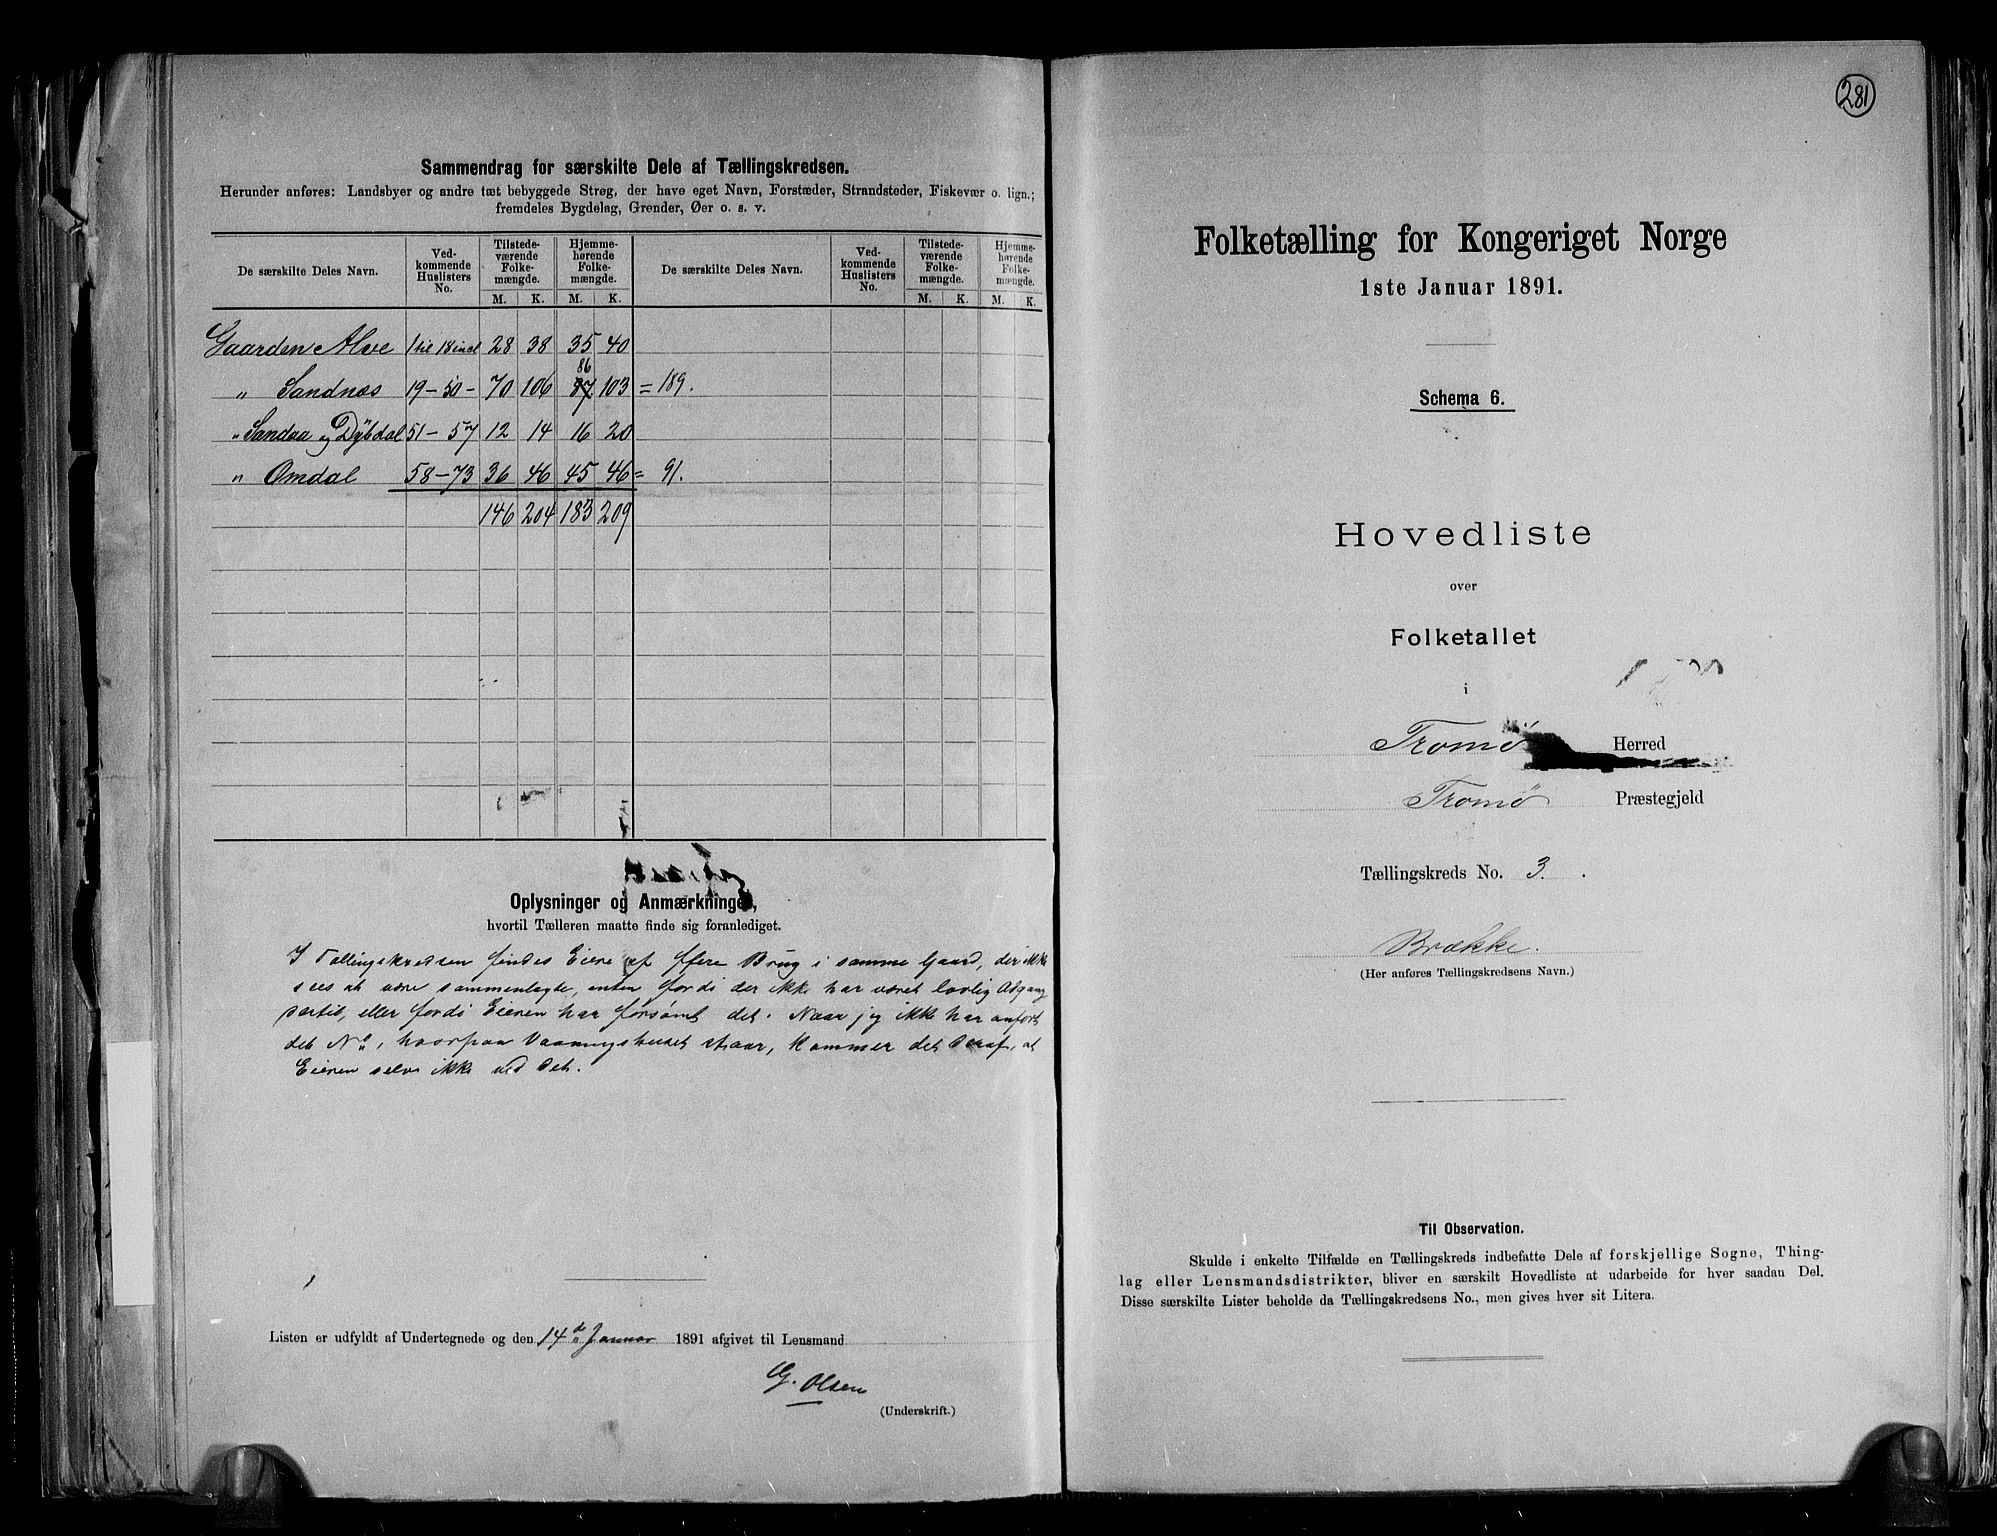 Sammendrag for særskilte Dele af Tællingskredsen.
Herunder anføres: Landsbyer og andre tæt bebyggede Strøg, der have eget Navn, Forstæder, Strandsteder, Fiskevær o. lign.;
fremdeles Bygdelag, Grender, Øer o. s. v.
De særskilte Deles Navn. Ved-kommende Huslisters No. Tilstede-værende Folke-mængde. Hjemme-hørende Folke-mængde. De særskilte Deles Navn. Ved-kommende Huslisters No. Tilstede-værende Folke-mængde. Hjemme-hørende Folke-mængde.
M. K. M. K. M. K. M. K.
Gaarden Alve 1 til 18 incl 28 38 35 40
86
" Sandnæs 19-50- 70 106 87 103 = 189.
" Sandaa og Dybdal 51-57 12 14 16 20
" Omdal 58-73 36 46 45 46 = 91.
146 204 183 209
Oplysninger og Anmærkninger,
hvortil Tælleren maatte finde sig foranlediget.
I Tællingskredsen findes Eiere af flere Brug i samme Gaard, der ikke
sees at være sammenlagte, enten fordi der ikke har været lovlig Adgang
dertil, eller fordi Eieren har forsømt det. Naar jeg ikke har anført
det No, hvorpaa Vaaningshuset staar, kommer det deraf, at
Eieren selv ikke ved det.
Listen er udfyldt af Undertegnede og den 14de Januar 1891 afgivet til Lensmand
G. Olsen
(Underskrift.)
281
Folketælling for Kongeriget Norge
1ste Januar 1891.
Schema 6.
Hovedliste
over
Folketallet
i
Tromø Herred
Tromø Præstegjeld
Tællingskreds No. 3.
Brække.
(Her anføres Tællingskredsens Navn.)
Til Observation.
Skulde i enkelte Tilfælde en Tællingskreds indbefatte Dele af forskjellige Sogne, Thing-
lag eller Lensmandsdistrikter, bliver en særskilt Hovedliste at udarbeide for hver saadan Del.
Disse særskilte Lister beholde da Tællingskredsens No., men gives hver sit Litera.